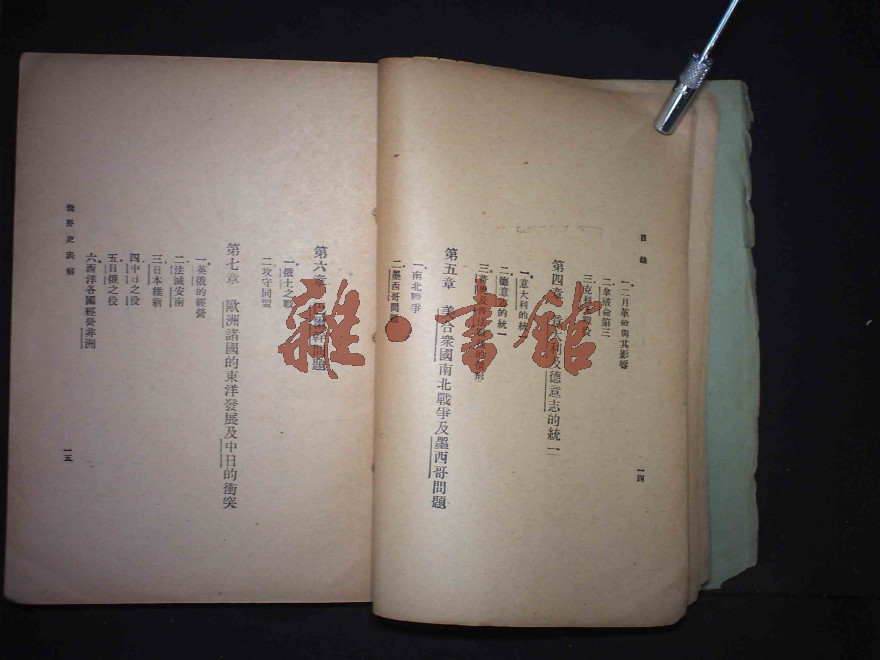 目錄
一.二月革命與其影響
二.拿破侖第三
三.克里米戰役
第四章 意大利及德意志的統一
一.意大利的統一
二.德意志的統一
第五章 美合衆國南北戰爭及墨西哥問題
一.南北戰爭
二.墨西哥問題
一四
第六章 巴爾幹問題
一.俄土之戰
二.攻守同盟
第七章 歐洲諸國的東洋發展及中日的衝突
一.英俄的經營
二.法滅安南
三.日本維新
四.中日之役
五.日俄之役
六.西洋各國經營非洲
世界史表解
一五
雜·書館